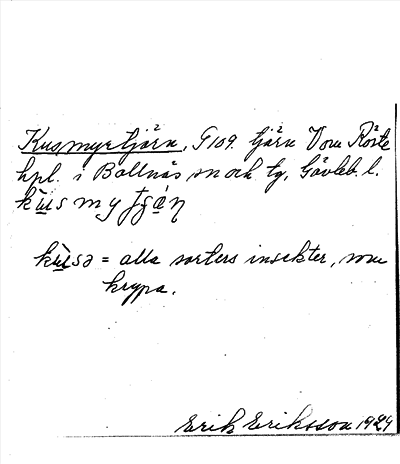 Kusmyrtjärn, G 109. tjärn V om Röste
hpl. i Bollnäs sn och tg, Gävleb. l.
kùsmy
kùsə = alla sorters insekter, som
krypa.
Erik Eriksson 1929